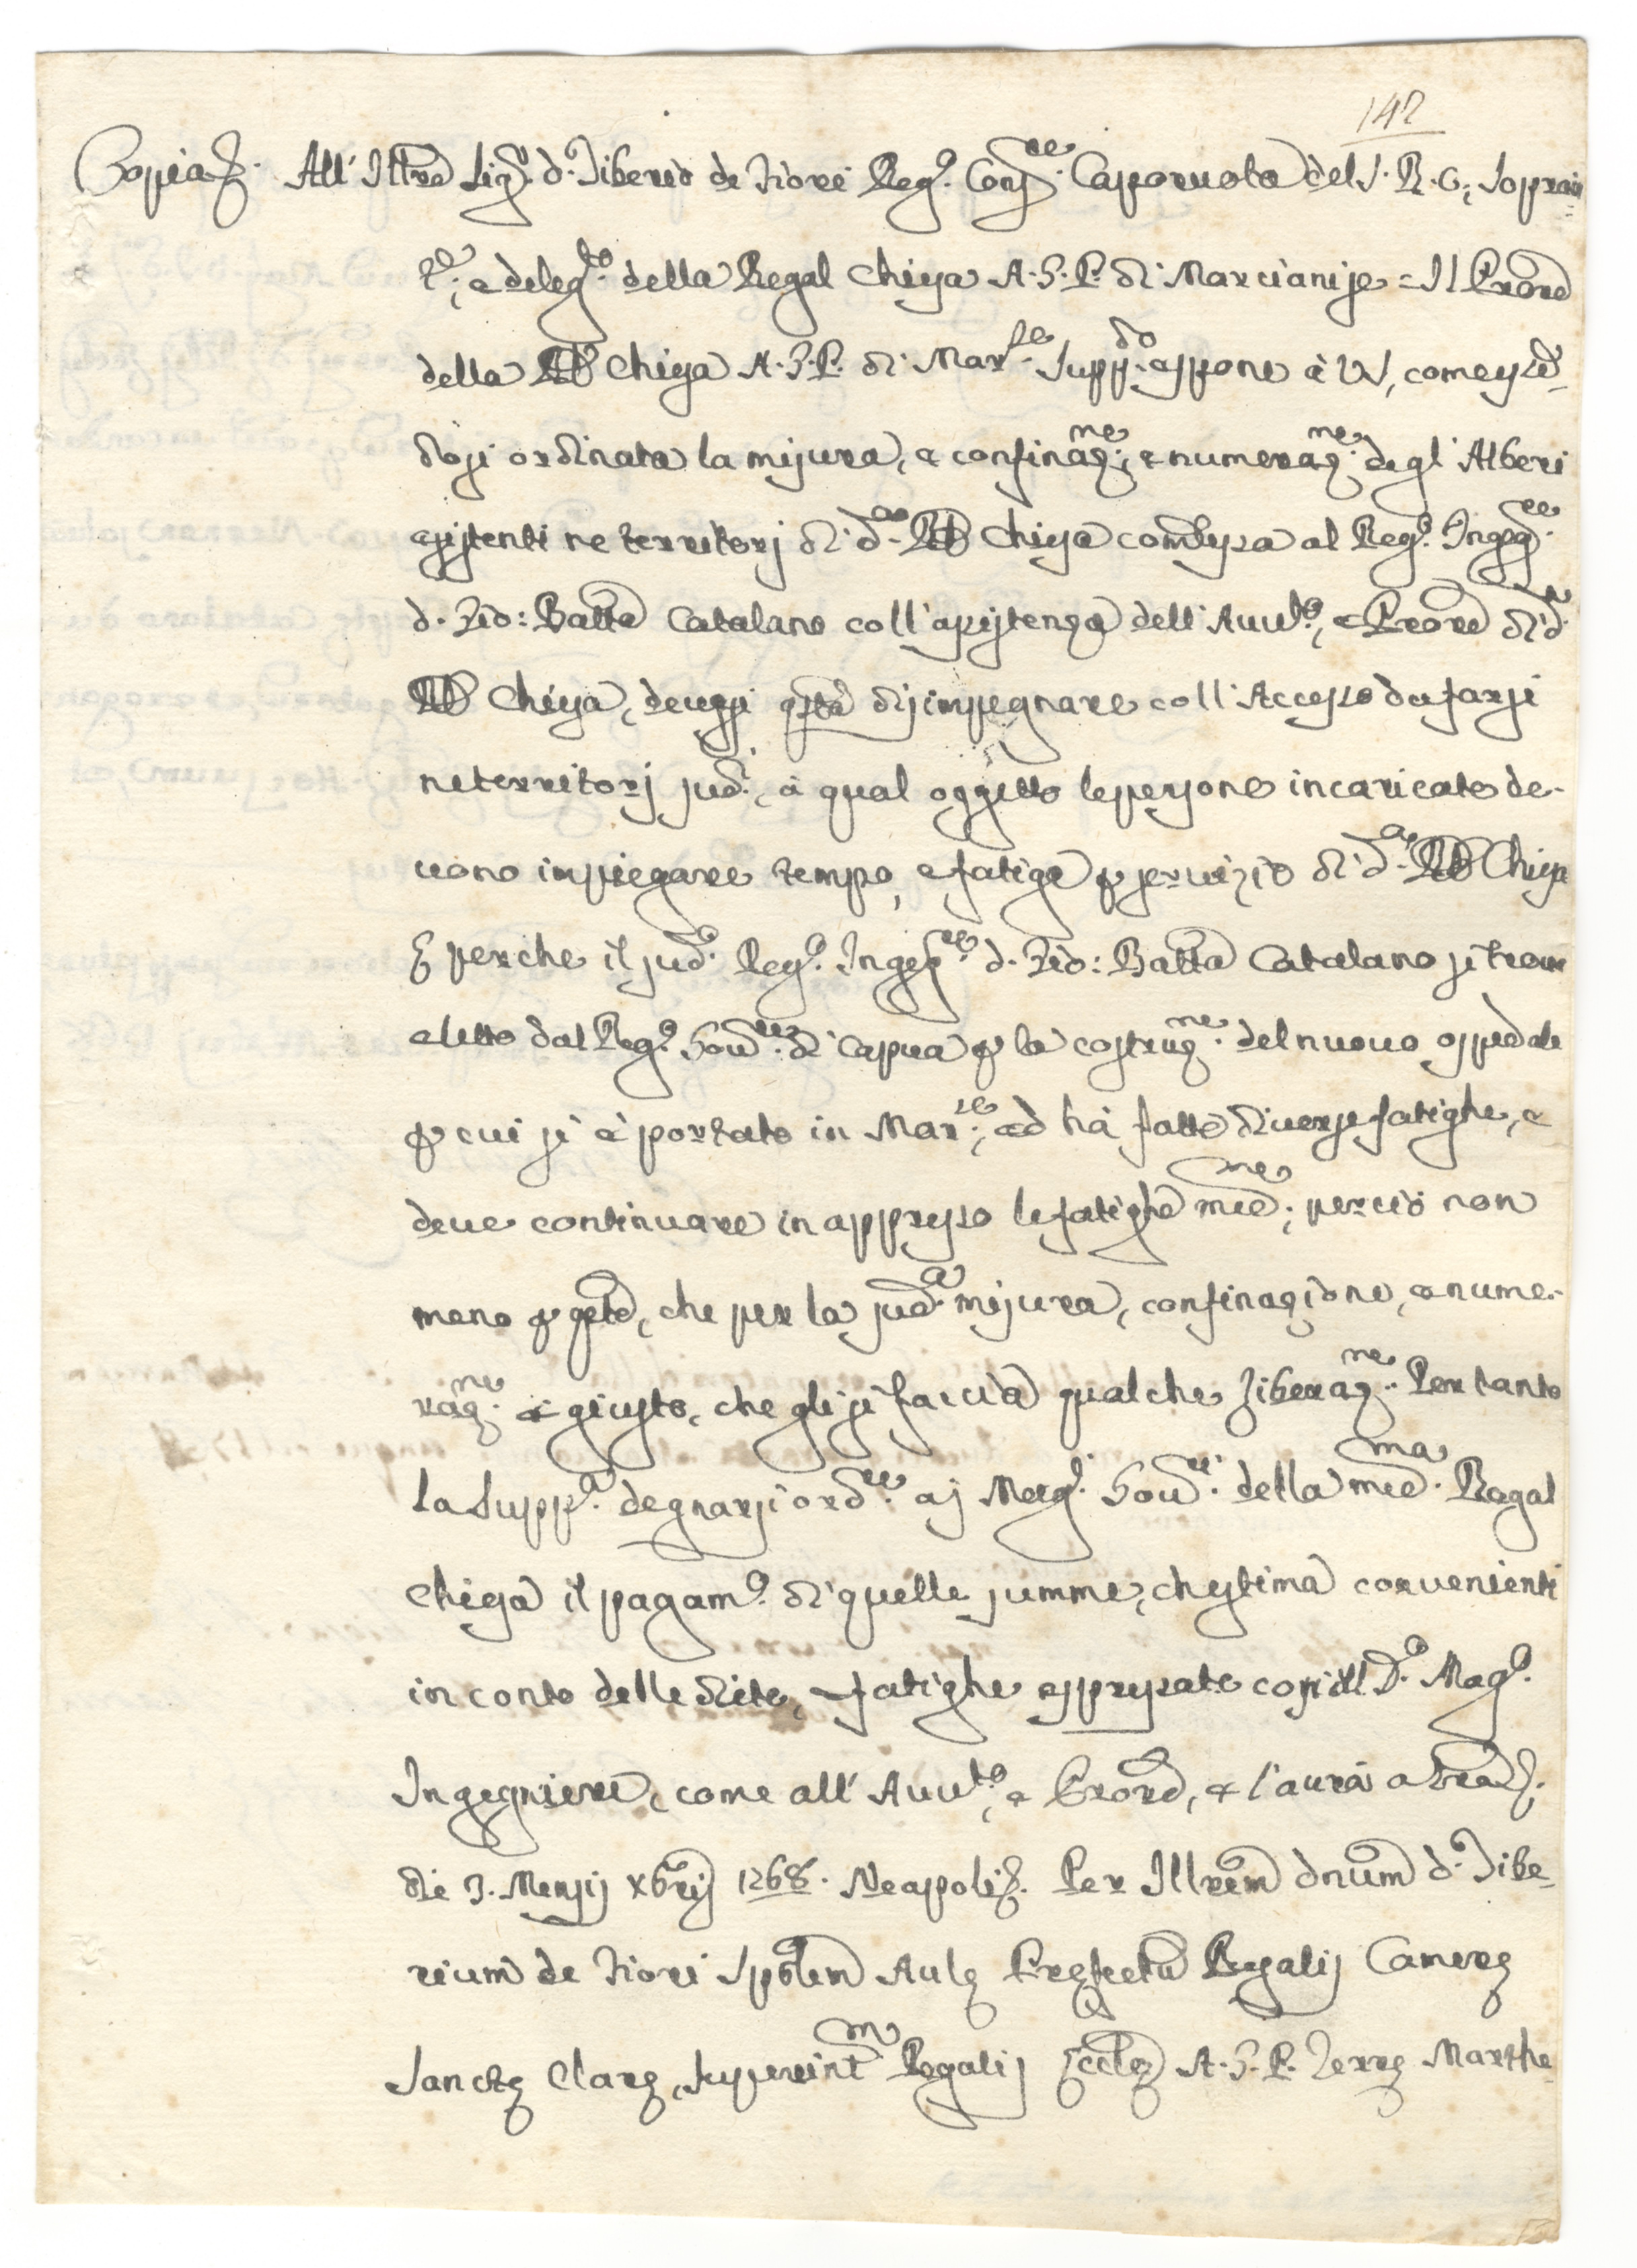 142
Copia. All' Ill.re Sig.r d. Tiberio de Fiore Reg.o Cons.re Caporuota del S. R. C., Soprain=
t.e, e deleg.to della Regal Chiesa A. G. P. di Marcianise = Il Pro.re
della Rl Chiesa A. G. P. di Mar.se supp.do espone à VS, come essen=
dosi ordinata la misura, e confinaz.ne, e numeraz.ne degl' Alberi
esistenti ne territorj di d.a Rl Chiesa commessa al Reg.o Ingeg.re
d. Gio: Batta Catalano coll' assistenza dell' Avv.to, e Pro.re di d.a
Rl Chiesa, devesi questa disimpegnare coll' Accesso da farsi
ne territorj sud.i, à qual oggetto le persone incaricate de-
vono impiegare tempo, e fatiga p servizio di d.a Rl Chiesa
E perche il sud.o Reg.o Ingeg.re d. Gio: Batta Catalano si trova
eletto dal Reg.o Gov.re di Capua p la costruz.ne del nuovo ospedale
p cui si è portato in Mar.se, ed hà fatto diverse fatighe, e
deve continuare in appresso le fatighe med.me; perciò non
meno p queste, che per la sud.a misura, confinazione, e nume-
raz.ne è giusto, che gli si faccia qualche liberaz.ne Per tanto
la Supp.a degnarsi ord.re aj Mag.i Gov.ri della med.ma Regal
Chiesa il pagam.o di quelle summe, ch'estima convenienti
in conto delle diete, e fatighe appressate così all D.o Mag.o
Ingegniere, come all' Avv.to, e Pro.re, e l'aurà a gra.
Die 3. Mensij Xbrij 1768. Neapoli. Per Illrem dnum d. Tibe=
rium de Fiori Spblem Aule Prefectu Regalij Camere
Sancte Clare, superint.m Regalij Eccle A. G. P. Terre Marthe=